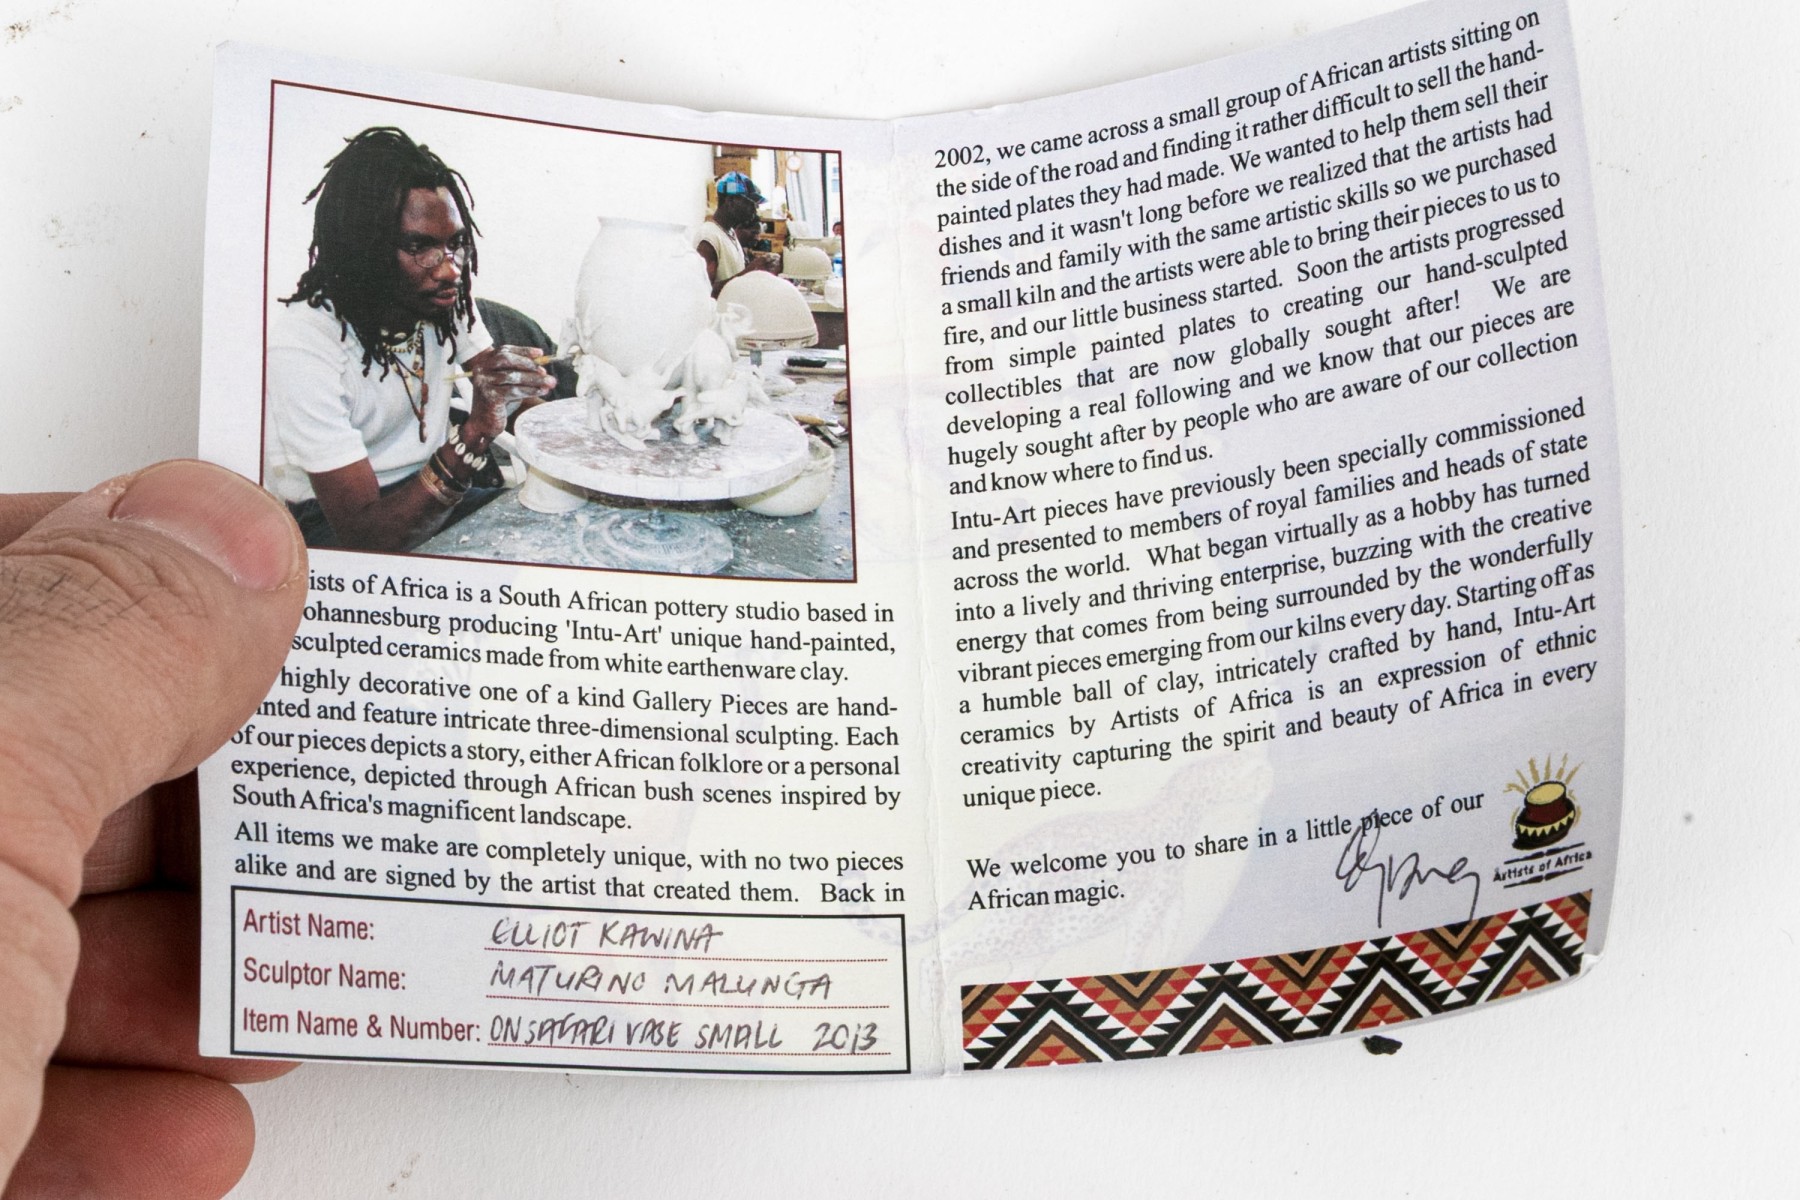 ists of Africa is a South African pottery studio based in
ohannesburg producing 'Intu-Art' unique hand-painted,
sculpted ceramics made from white earthenware clay.
highly decorative one of a kind Gallery Pieces are hand-
inted and feature intricate three-dimensional sculpting. Each
of our pieces depicts a story, either African folklore or a personal
experience, depicted through African bush scenes inspired by
South Africa's magnificent landscape.
All items we make are completely unique, with no two pieces
alike and are signed by the artist that created them. Back in
Artist Name: ELLIOT KAWINA
Sculptor Name: MATURINO MALUNGA
Item Name & Number: ON SAFARI VASE SMALL 2013
2002, we came across a small group of African artists sitting on
the side of the road and finding it rather difficult to sell the hand-
painted plates they had made. We wanted to help them sell their
dishes and it wasn't long before we realized that the artists had
friends and family with the same artistic skills so we purchased
a small kiln and the artists were able to bring their pieces to us to
fire, and our little business started. Soon the artists progressed
from simple painted plates to creating our hand-sculpted
collectibles that are now globally sought after! We are
developing a real following and we know that our pieces are
hugely sought after by people who are aware of our collection
and know where to find us.
Intu-Art pieces have previously been specially commissioned
and presented to members of royal families and heads of state
across the world. What began virtually as a hobby has turned
into a lively and thriving enterprise, buzzing with the creative
energy that comes from being surrounded by the wonderfully
vibrant pieces emerging from our kilns every day. Starting off as
a humble ball of clay, intricately crafted by hand, Intu-Art
ceramics by Artists of Africa is an expression of ethnic
creativity capturing the spirit and beauty of Africa in every
unique piece.
We welcome you to share in a little piece of our
African magic.
Artists of Africa